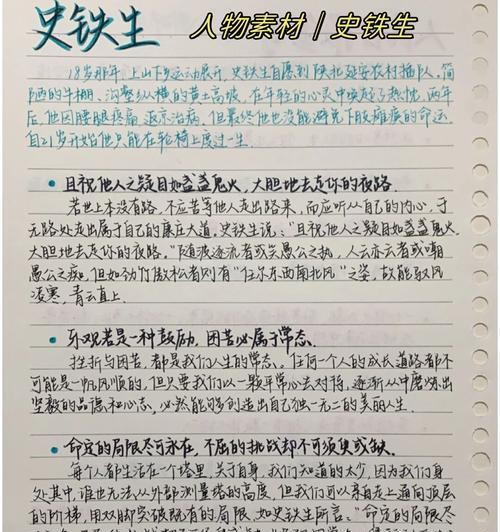 史铁生
人物素材 | 史铁生
18岁那年，上山下乡运动展开，史铁生自愿到陕北延安农村插队，简
陋的牛棚、沟壑纵横的黄土高坡，在年轻的心灵中唤起了热忱，两年
后，他因腰腿疼痛返京治病，但最终他也没能避免下肢瘫痪的命运，
自21岁开始他只能在轮椅上度过一生
• 且视他人之疑目如盏盏鬼火，大胆地去走你的夜路.
若世上本没有路，不应苦等他人走出路来，而应听从自己的内心，于
无路处走出属于自己的康庄大道，史铁生说："且视他人之疑目如盏盏鬼火，
大胆地去走你的夜路。"随波逐流者或笑愚公之执，人云亦云者或嘲
愚公之痴，但如劲竹傲松者则有"任尔东西南北风"之姿，故能驭风
凌寒，青云直上.
• 乐观若是一种鼓励，困苦必属于常态.
挫折与困苦，都是我们人生的常态。任何一个人的成长道路都不
可能是一帆风顺的，但只要我们以一颗平常心去对待，逐渐从中磨炼出
坚毅的品德和心志，必然能够创造出自己独一无二的美丽人生.
• 命定的局限尽可永在，不屈的挑战却不可须臾或缺.
每个人都生活在一个塔里，关于自身，我们知道的太少，因为我们身
处其中，谁也无法从外部测量塔的高度，但我们可以亲自去上通向顶层
的阶梯，用双脚突破既有的局限，如史铁生所言，"命定的局限尽